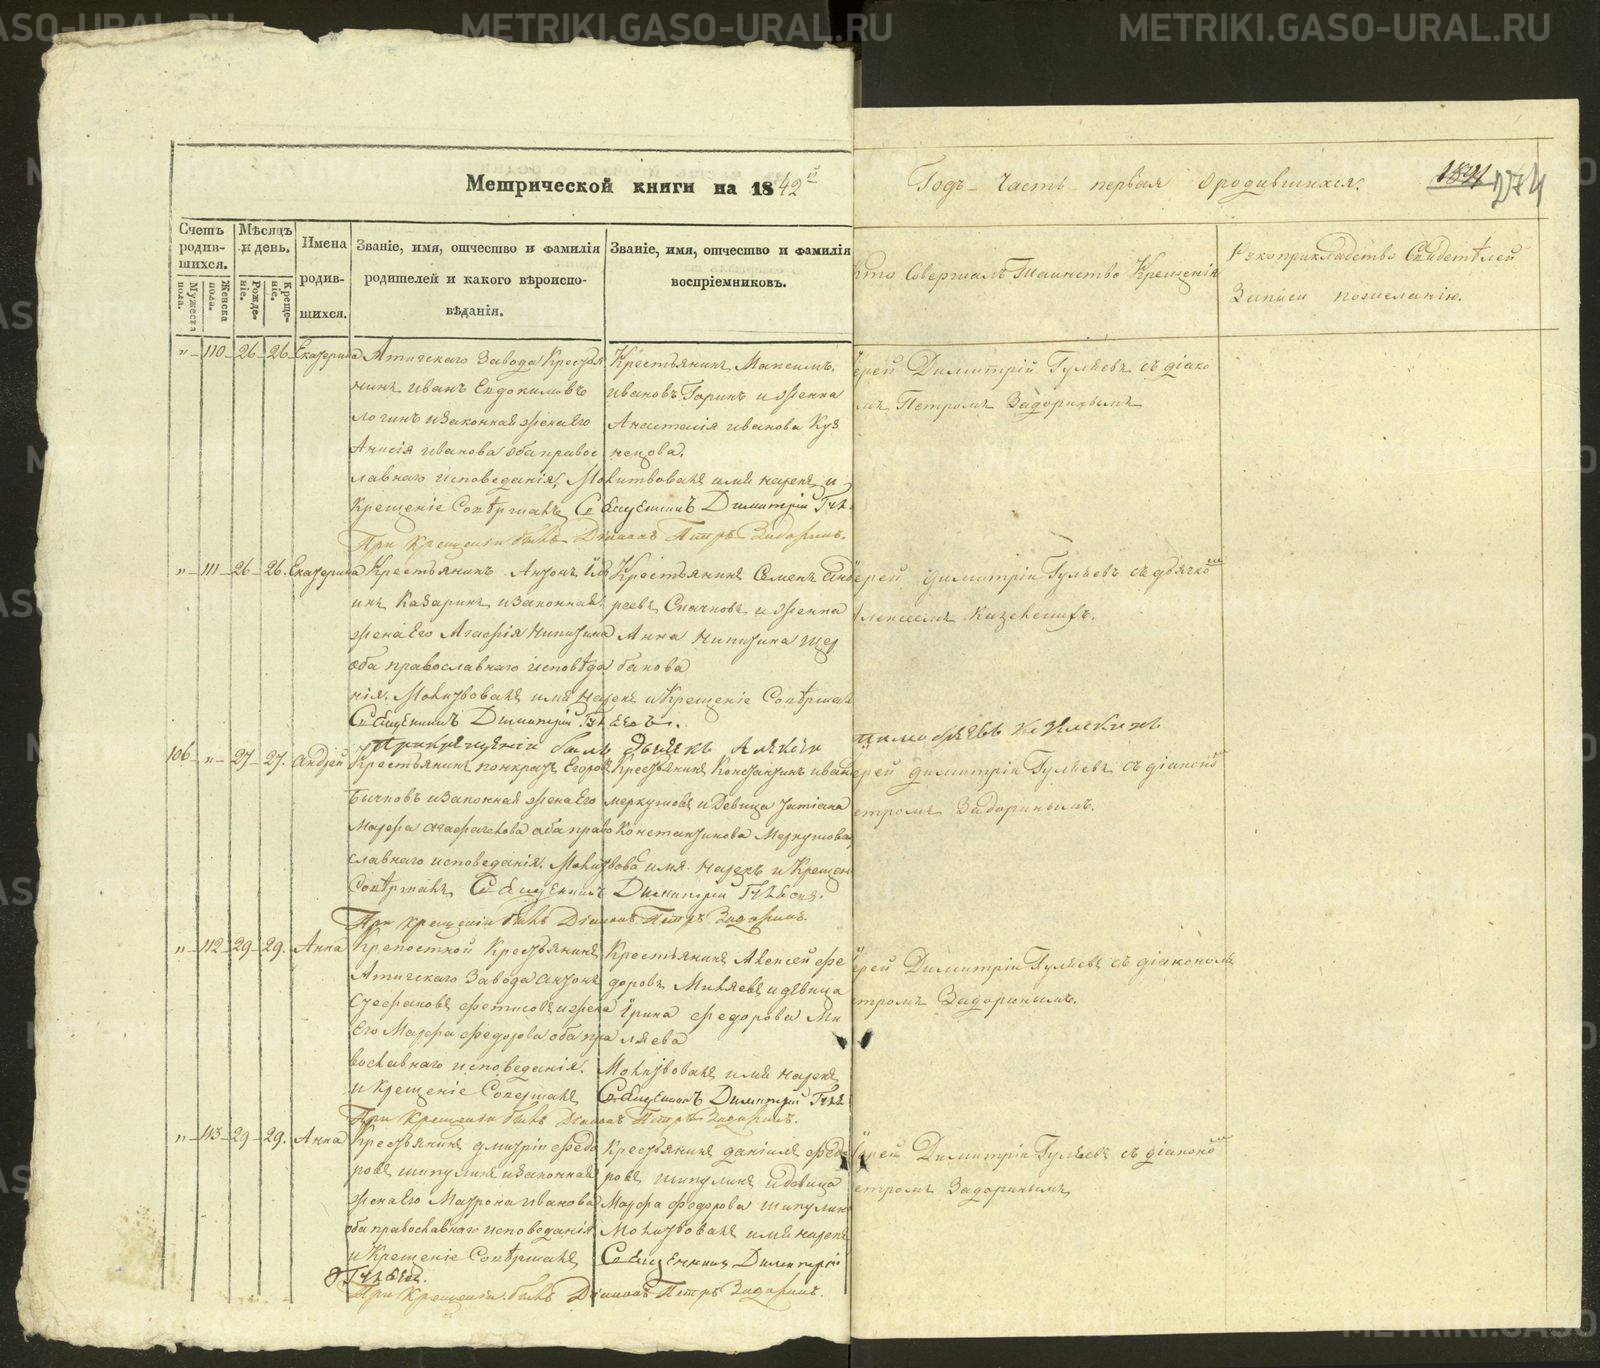 METRIKI.GASO-URAL.RU
Метрической книги на 1842й
Годъ часть первая о родившихся.
274
Счетъ родив-шихся.
Мужеска пола.
Женска пола.
Мѣсяцъ и день.
Рожде-ніе.
Креще-ніе.
Имена родив-шихся.
Званіе, имя, отчество и фамилія
родителей и какого вѣроиспо-
вѣданія.
Званіе, имя, отчество и фамилія
воспріемниковъ.
Кто Совершалъ Таинство Крещенія
Рукоприкладство Свидетѣлей
Записи по желанію.
" 110 26 26 Екатерина
Атигскаго Завода Крестья
нинъ иванъ Евдокимовъ
логинъ и законная жена его
Анисія иванова оба правос
лавнаго исповеданія. Молитвовалъ имя нарекъ и
Крещеніе Совѣршалъ Священникъ Димитрій
При крещеніи былъ Діаконъ Петръ Задоринъ.
Крестьянинъ Максимъ
ивановъ Горинъ и женна
Анастасія иванова Куз
нецова.
ерей Димитрій Гуляевъ съ діако
мъ Петромъ Задоринымъ
" 111 26 26 Екатерина
Крестьянинъ Антонъ
инъ Казаринъ и законная
жена его Агафія Никитина
оба православнаго исповѣда
нія. Молитвовалъ имя нарекъ и Крещеніе Совѣршалъ
Священникъ Димитрій Гуляевъ.
При крещеніи былъ дьячекъ Алексѣй
Крестьянинъ Семенъ Анд
реевъ Спачковъ и женна
Анна Никитина Щер
бакова
ерей Димитрій Гуляевъ съ дьячкомъ
лексеемъ
106 " 27 27. Андрей
Крестьянинъ понкратъ Егоровъ
Бычковъ и законная жена его
Марфа агафонова оба право
славнаго исповеданія. Молитвовалъ имя нарекъ и Крещеніе
Совѣршалъ Священникъ Димитрій Гуляевъ.
При крещеніи былъ Діаконъ Петръ Задоринъ.
Крестьянинъ Константинъ иванъ
меркушовъ и Девица татіана
Константинова Меркушова
ерей димитрій Гуляевъ съ діакономъ
етромъ Задоринымъ.
" 112 29 29. Анна
Крепостной Крестьянинъ
Атигскаго Завода антонъ
Стефановъ Фетисовъ и жена
Его Марфа Федорова оба пра
вославнаго исповеданія.
и Крещеніе Совершалъ
При крещеніи былъ Діаконъ Петръ Задоринъ.
Крестьянинъ Алексей Фе
доровъ Миляевъ и девица
Ірина Федорова Ми
ляева
Молитвовалъ имя нарекъ
Священникъ Димитрій
ерей Димитрій Гуляевъ съ діакономъ
етромъ Задоринымъ.
" 113 29 29. Анна
Крестьянинъ дмитрій Федо
ровъ шипулинъ и законная
жена его Матрона иванова
оба православнаго исповеданія
и Крещеніе Совѣршалъ
Гуляевъ.
При Крещеніи былъ Діаконъ Петръ Задоринъ.
Крестьянинъ даніилъ Федо
ровъ шипулинъ и девица
Марфа Федорова шипулин
Молитвовалъ имя нарекъ
Священникъ Димитрій
ерей Димитрій Гуляевъ съ діакономъ
етромъ Задоринымъ